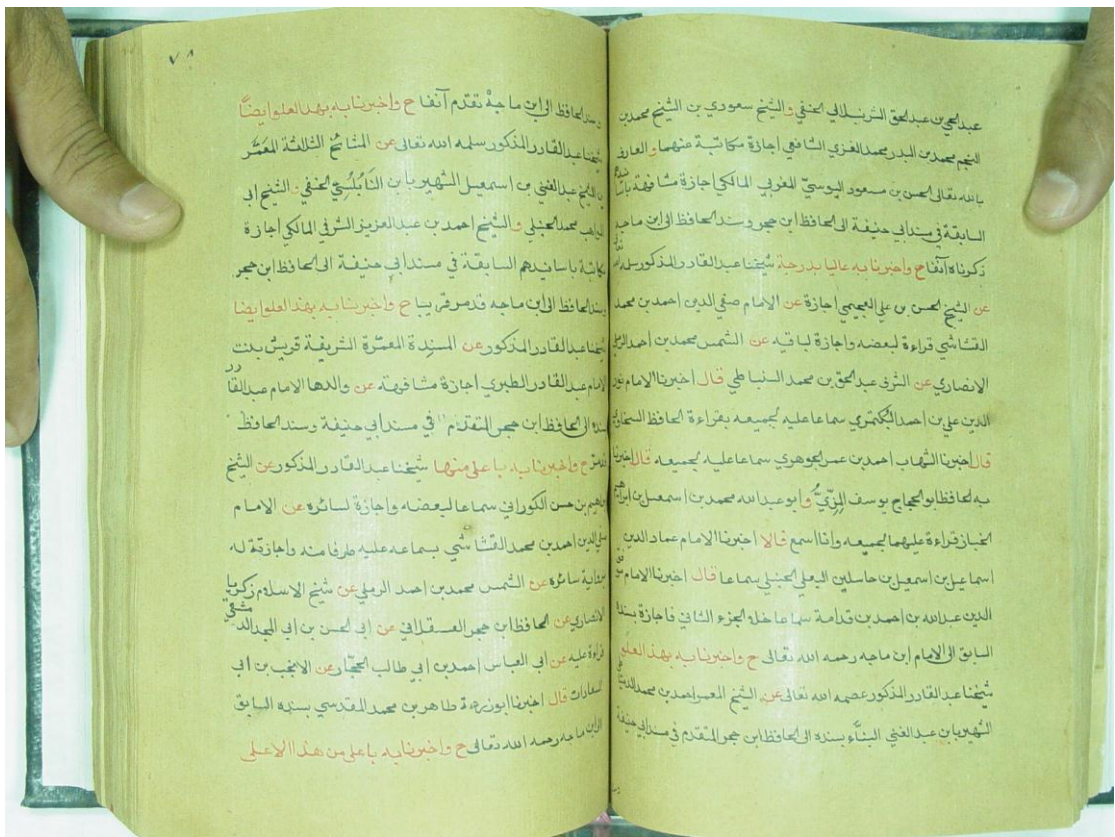 عبدالحي بن عبدالحق الشرنبلالي الحنفي والشيخ سعودي بن الشيخ محمد بن
النجم محمد بن البدر محمد الغزي الشافعي اجازة مكاتبة عنهما والعارف
بالله تعالى الحسن بن مسعود اليوسيّ المغربي المالكي اجازة مشافهة باسانيدهم
السابقة في مسند ابي حنيفة الى الحافظ ابن حجر وسند الحافظ الى ابن ماجه
ذكرناه آنفا ح واخبرنا به عاليا بدرجة شيخنا عبد القادر المذكور سلمه
عن الشيخ الحسن بن علي العجيمي اجازة عن الامام صفي الدين احمد بن محمد
القشاشي قراءة لبعضه واجازة لباقيه عن الشمس محمد بن احمد الرملي
الانصاري عن الشرف عبد الحق بن محمد السنباطي قال اخبرنا الامام نور
الدين علي بن احمد البكتمري سماعا عليه لجميعه بقراءة الحافظ السخاوي
قال اخبرنا الشهاب احمد بن عمر الجوهري سماعا عليه لجميعه قال اخبرنا
به الحافظ ابو الحجاج يوسف المِزّيُّ وابو عبد الله محمد بن اسمعيل بن ابراهيم
الخباز قراءة عليهما لجميعه وانا اسمع قالا اخبرنا الامام عماد الدين
اسماعيل بن اسمعيل بن جاسلين البعلي الحنبلي سماعا قال اخبرنا الامام موفق
الدين عبد الله بن احمد بن قدامة سماعا خلا الجزء الثاني فاجازة بسنده
السابق الى الامام ابن ماجه رحمه الله تعالى ح واخبرنا به بهذا العلو
شيخنا عبد القادر المذكور عصمه الله تعالى عن الشيخ المعمر احمد بن محمد الدمياطي
الشهير بابن عبد الغني البنّاء بسنده الى الحافظ ابن حجر المتقدم في مسند ابي حنيفة
٧٨
وسند الحافظ الى ابن ماجةْ تقدم آنفا ح واخبرنا به بهذ العلو ايضًا
شيخنا عبد القادر المذكور سلمه الله تعالى عن المشائخ الثلاثة المعَمَّر
بن الشيخ عبد الغني بن اسمعيل الشهير بابن النَابُلُسِيّ الحنفي والشيخ ابي
المواهب محمد الحنبلي والشيخ احمد بن عبد العزيز الشرفي المالكي اجازة
مكاتبة باسانيدهم السابقة في مسند ابي حنيفة الى الحافظ ابن حجر
وسند الحافظ الى ابن ماجه قد مر قريبا ح واخبرنا به بهذ العلو ايضا
شيخنا عبد القادر المذكور عن المسندة المعمّرة الشريفة قريش بنت
الامام عبد القادر الطبري اجازة مشافهة عن والدها الامام عبد القادر
بسنده الى الحافظ ابن حجر المتقدم في مسند ابي حنيفة وسند الحافظ
قد مر ح واخبرنا به باعلى منها شيخنا عبد القادر المذكور عن الشيخ
ابراهيم بن حسن الكوراني سماعا لبعضه واجازة لسائره عن الامام
صفي الدين احمد بن محمد القشاشي بسماعه عليه طرفا منه واجازته له
سائره عن الشمس محمد بن احمد الرملي عن شيخ الاسلام زكريا
الانصاري عن الحافظ ابن حجر العسقلاني عن ابي الحسن بن ابي المجد الدمشقي
قراءة عليه عن ابي العباس احمد بن ابي طالب الحجّار عن الانجب بن ابي
السعادات قال اخبرنا ابو زرعة طاهر بن محمد المقدسي بسنده السابق
الى ابن ماجه رحمه الله تعالى ح واخبرنا به باعلى من هذا الاعلى